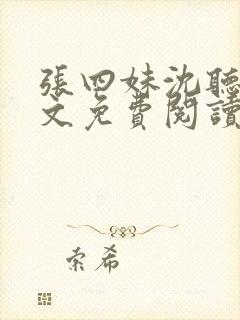 張四妹沈聽
文免費閱讀
索希